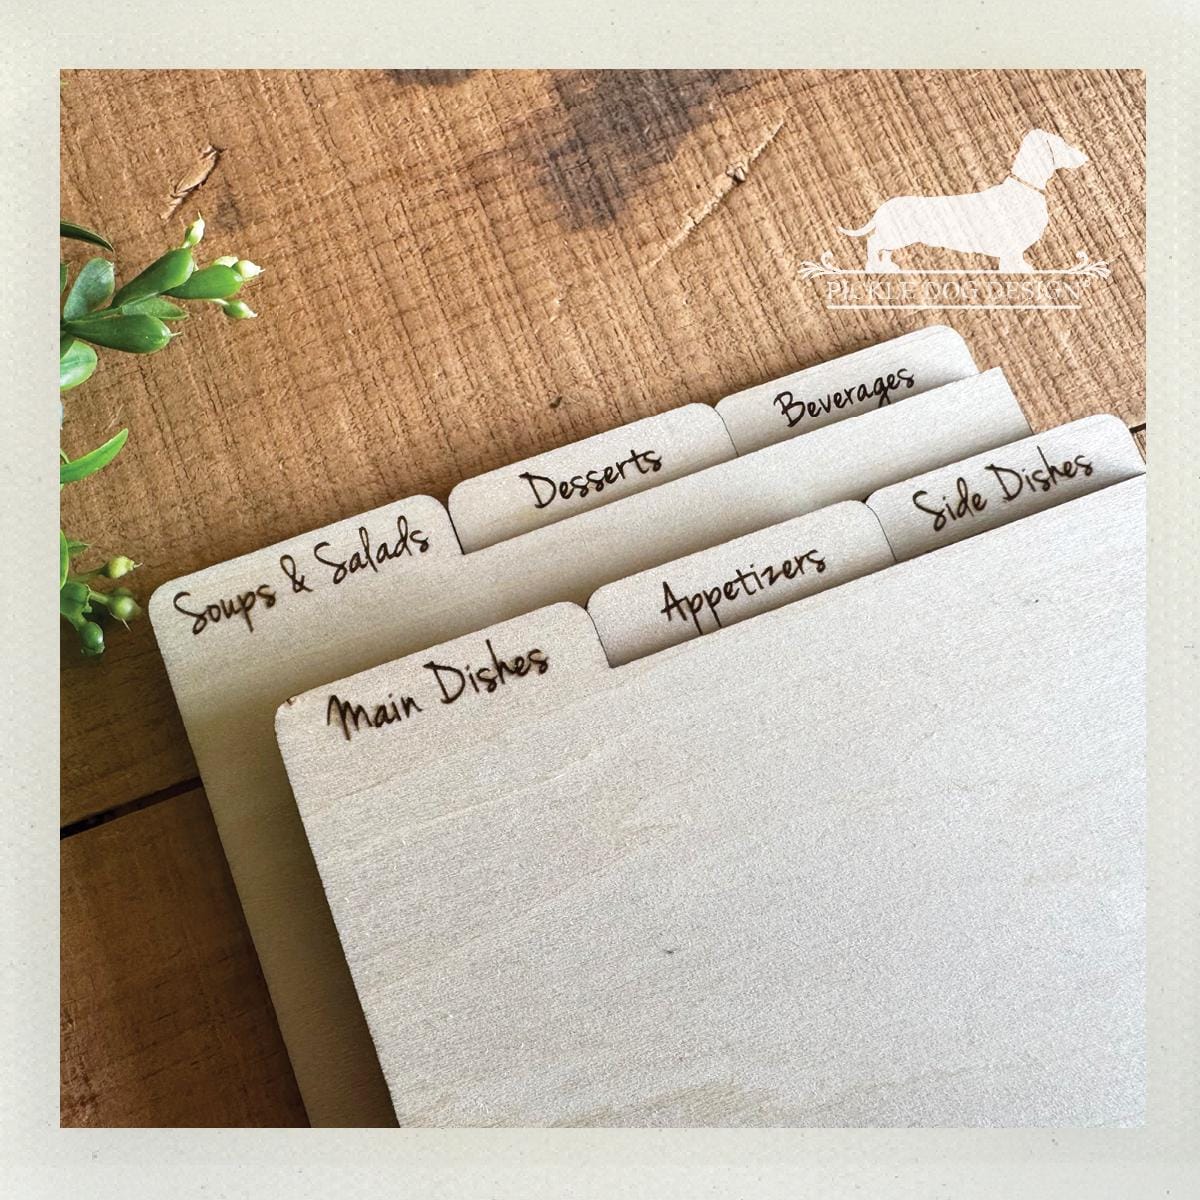 PICKLE DOG DESIGN®
Beverages
Desserts
Soups & Salads
Side Dishes
Appetizers
Main Dishes